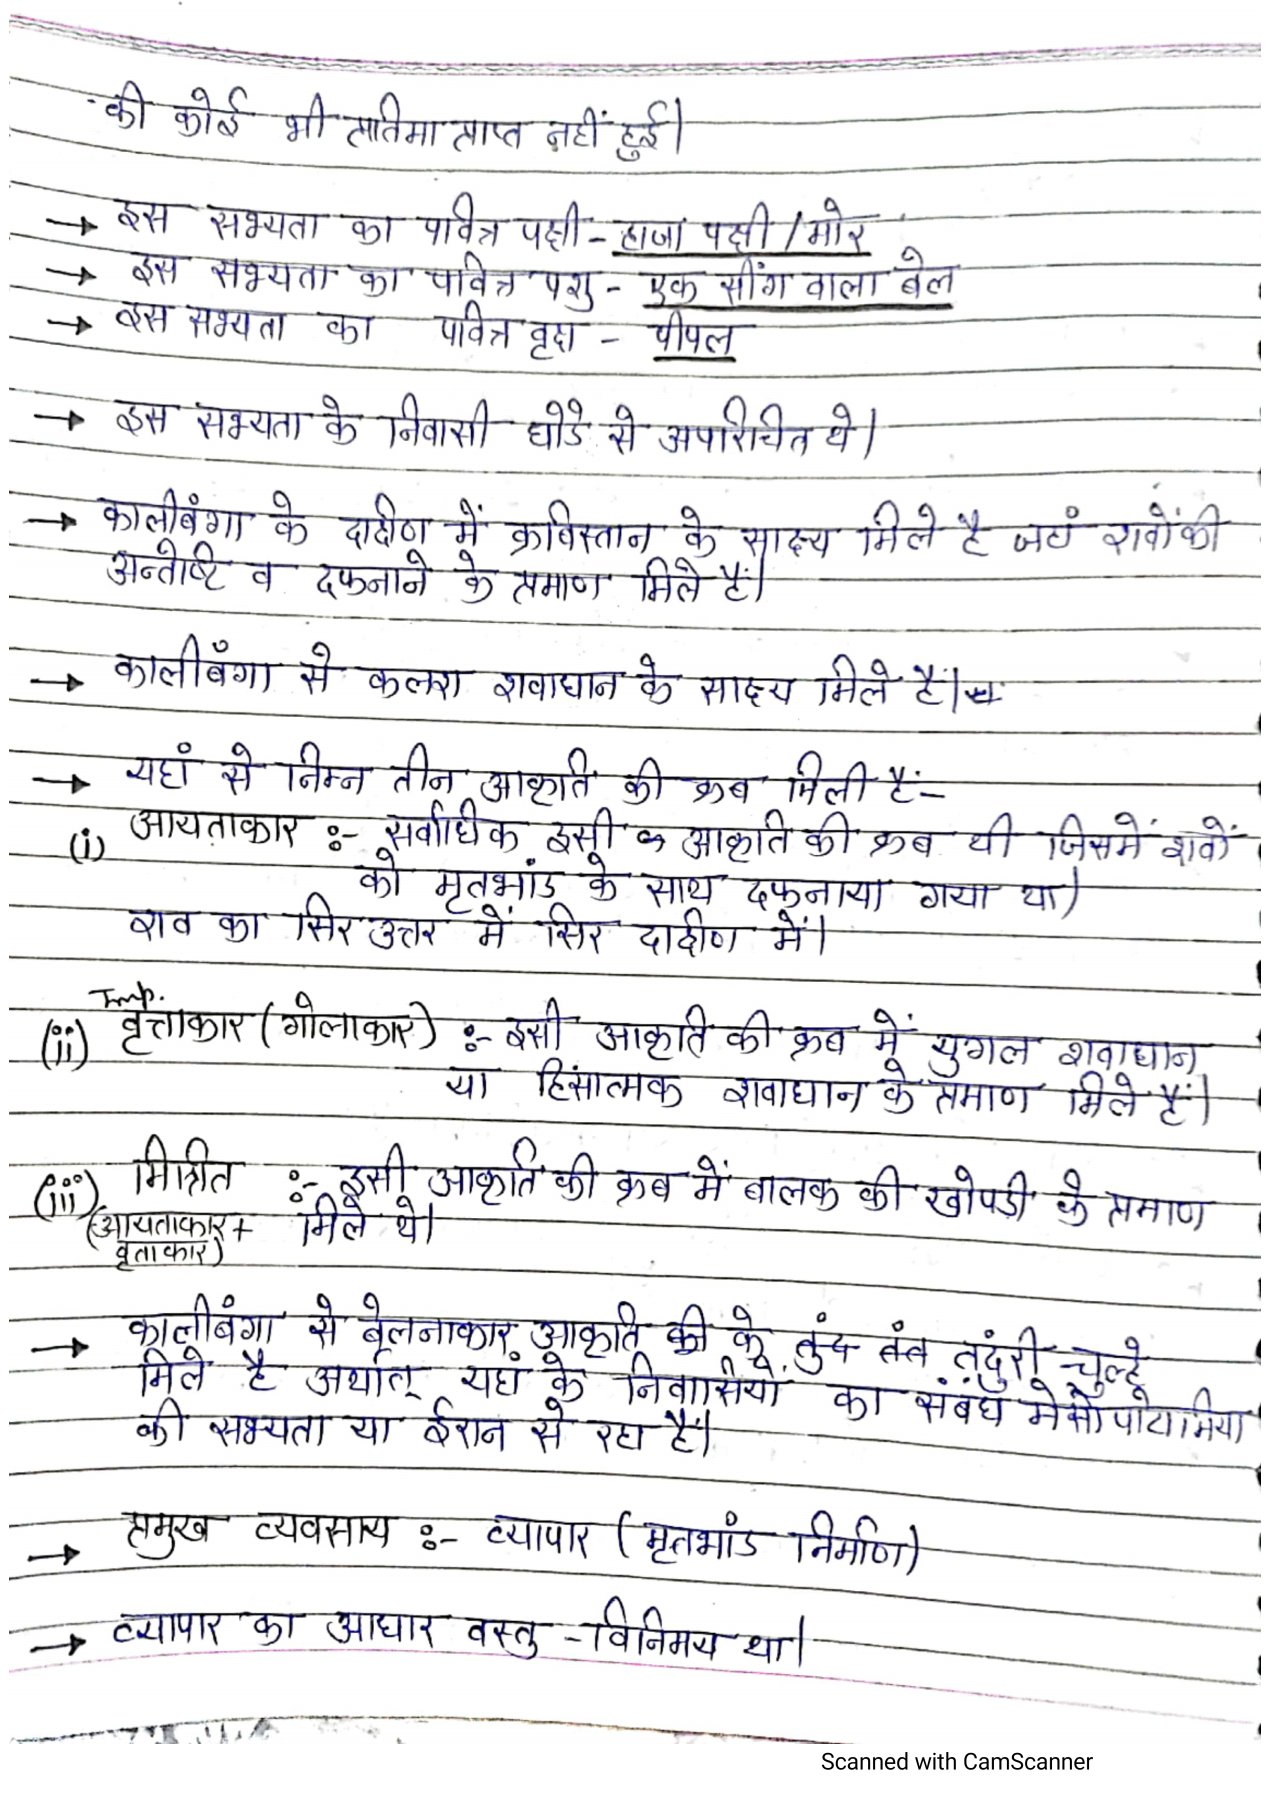 की कोई भी प्रतिमा प्राप्त नहीं हुई।
→ इस सभ्यता का पवित्र पक्षी - हाजा पक्षी / मोर
→ इस सभ्यता का पवित्र पशु - एक सींग वाला बेल
→ इस सभ्यता का पवित्र वृक्ष - पीपल
→ इस सभ्यता के निवासी घोडे से अपरिचित थे।
→ कालीबंगा के दक्षिण में क्रबिस्तान के साक्ष्य मिले है जहां शवों की
अन्तोष्टि व दफनाने के प्रमाण मिले हैं।
→ कालीबँगा से कलश शवाधान के साक्ष्य मिले हैं।
→ यहां से निम्न तीन आकृति की क्रब मिली हैं:-
(i) आयताकार :- सर्वाधिक इसी आकृति की क्रब थी जिसमें शवों
को मृतभांड के साथ दफनाया गया था)
शव का सिर उत्तर में सिर दक्षिण में।
Imp.
(ii) वृत्ताकार (गोलाकार) :- इसी आकृति की क्रब में युगल शवाधान
या हिंसात्मक शवाधान के प्रमाण मिले हैं।
(iii) मिश्रित :- इसी आकृति की क्रब में बालक की खोपडी के प्रमाण
(आयताकार + मिले थे।
वृताकार)
→ कालीबंगा से बेलनाकार आकृति की के तुंद तंत तंदुरी चुल्हे
मिले है अर्थात् यहां के निवासियों का संबंध मेसोपोटामिया
की सभ्यता या ईरान से रहा है।
→ प्रमुख व्यवसाय :- व्यापार (मृतभांड निर्माण)
→ व्यापार का आधार वस्तु - विनिमय था।
Scanned with CamScanner